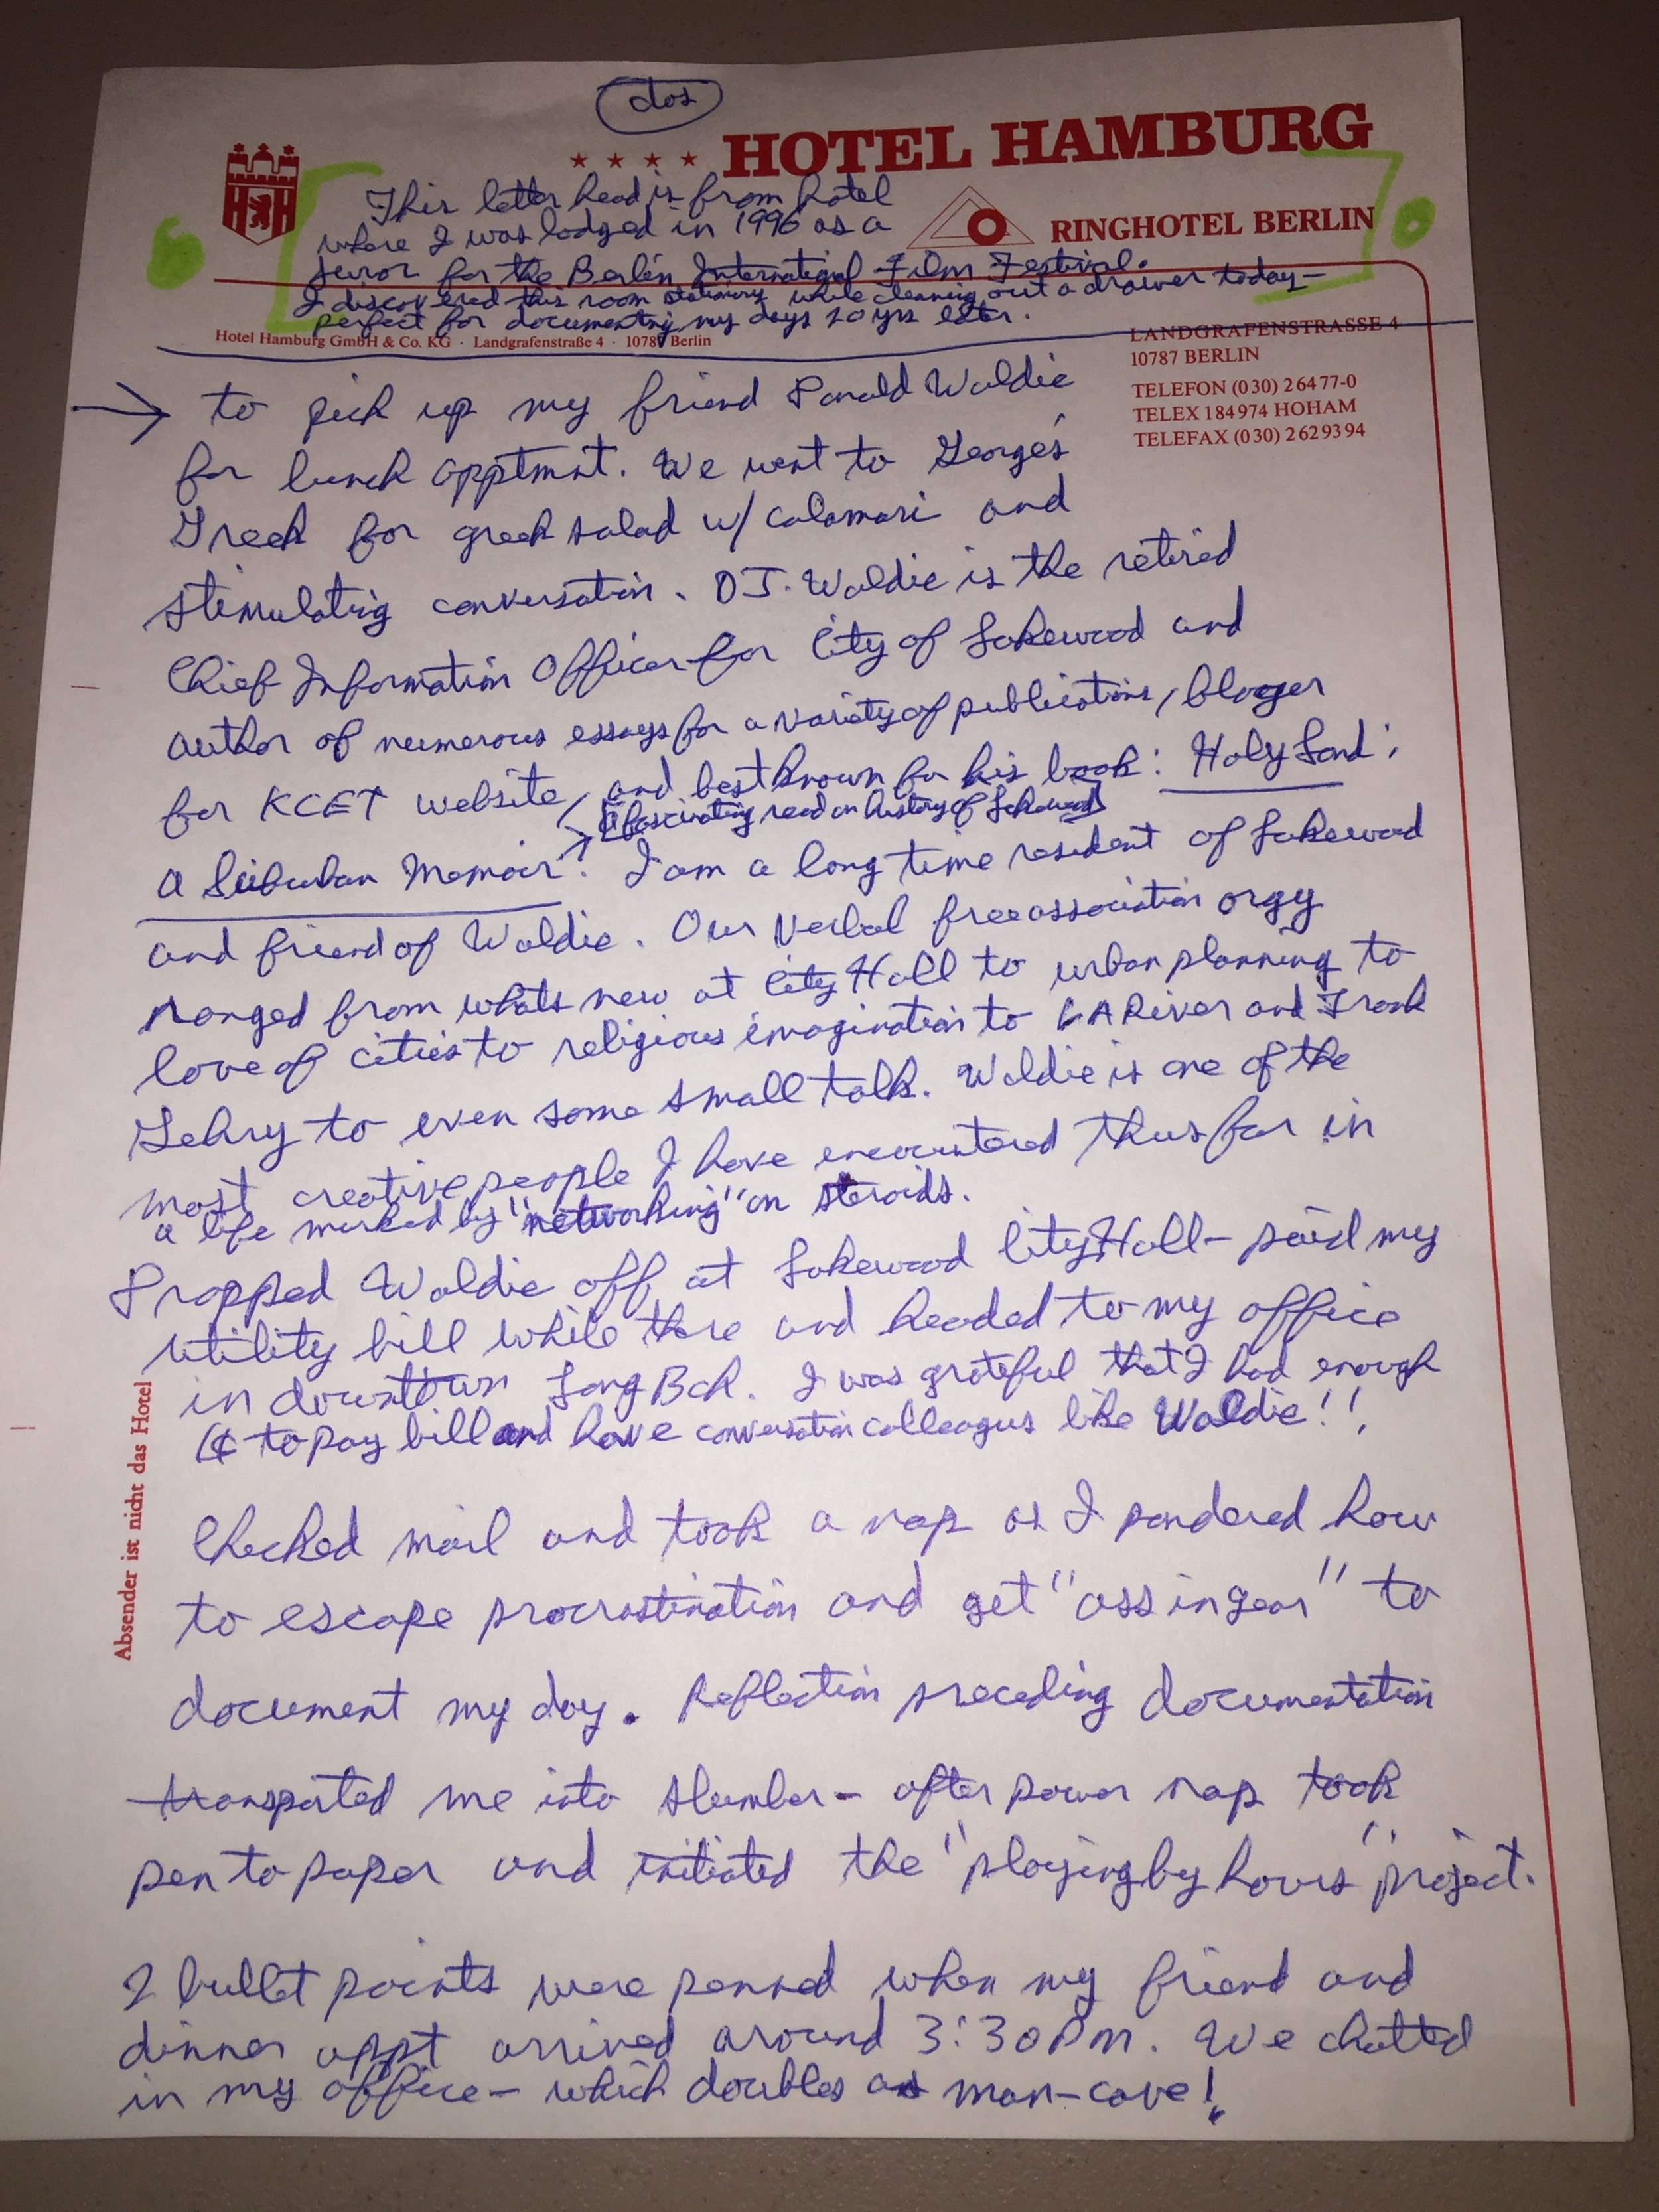 dos
★ ★ ★ ★ HOTEL HAMBURG
RINGHOTEL BERLIN
This letter head is from hotel
where I was lodged in 1996 as a
juror for the Berlin International Film Festival.
I discovered this room stationery while cleaning out a drawer today—
perfect for documenting my days 20 yrs later.
Hotel Hamburg GmbH & Co. KG · Landgrafenstraße 4 · 10787 Berlin
LANDGRAFENSTRASSE 4
10787 BERLIN
TELEFON (030) 26477-0
TELEX 184974 HOHAM
TELEFAX (030) 2629394
→ to pick up my friend Donald Waldie
for lunch apptmnt. We went to George's
Greek for greek salad w/ calamari and
stimulating conversation. DJ. Waldie is the retired
Chief Information Officer for City of Lakewood and
author of numerous essays for a variety of publications, bloger
for KCET website, and best known for his book: Holy Land:
[A fascinating read on history of Lakewood]
A Suburban Memoir. I am a long time resident of Lakewood
and friend of Waldie. Our verbal free association orgy
ranged from whats new at City Hall to urban planning to
love of cities to religious imagination to LA River and Frank
Gehry to even some small talk. Waldie is one of the
most creative people I have encountered thus far in
a life marked by "networking" on steroids.
Dropped Waldie off at Lakewood City Hall – paid my
utility bill while there and headed to my office
in downtown Long Bch. I was grateful that I had enough
¢ to pay bill and have conversation colleagus like Waldie!!
Checked mail and took a nap as I pondered how
to escape procrastination and get "ass in gear" to
document my day. Reflection preceding documentation
transported me into slumber – after power nap took
pen to paper and initiated the "playing by hours" project.
2 bullet points were penned when my friend and
dinner appt arrived around 3:30 PM. We chatted
in my office – which doubles as man-cave!
Absender ist nicht das Hotel